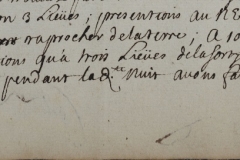 on 3 Lieües; presentions au N E
raprocher delaterre; a 10
tions qu'a trois Lieües delaforty
pendant la d.te Nuit avons fa